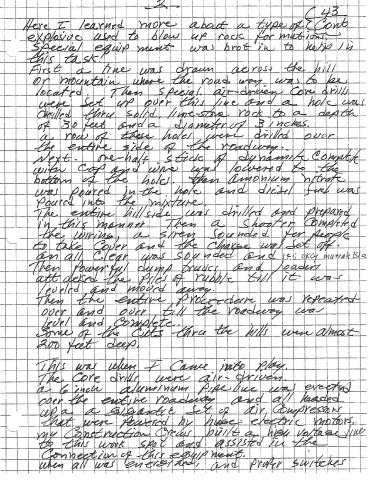 2
(43
Here I learned more about a type of (Cont
explosive used to blow up rock for
Special equipment was brot in to help in
this task!
First a line was drawn across the hill
or mountain where the road way was to be
located. Then special air-driven core drills
were set up over this line and a hole was
drilled thru solid lime-stone rock to a depth
of 30 feet and a diameter of 3 inches.
a row of these holes were drilled over
the entire side of the roadway.
Next. one-half stick of dynamite complete
with cap and wire was lowered to the
bottom of the hole. then amonium nitrate
was poured in the hole and diesel fuel was
poured into the mixture.
The entire hillside was drilled and prepared
in this manner. Then a shooter completed
the wiring, a siren sounded for people
to take cover and the charge was set off.
an all clear was sounded and
Then powerful dump trucks and loaders
attacked the piles of rubble till it was
leveled and moved away.
Then the entire procedure was repeated
over and over till the roadway was
level and complete.
Some of the cuts thru the hills were almost
200 feet deep.
This was when I came into play.
The core drills were air-driven
a 6 inch aluminum pipe line was erected
over the entire roadway and all hooked
up to a gigantic set of air compressors
that were powered by huge electric motors.
my construction crews built a high voltage line
to this work spot and assisted in the
connection of this equipment.
when all was energized, and proper switches